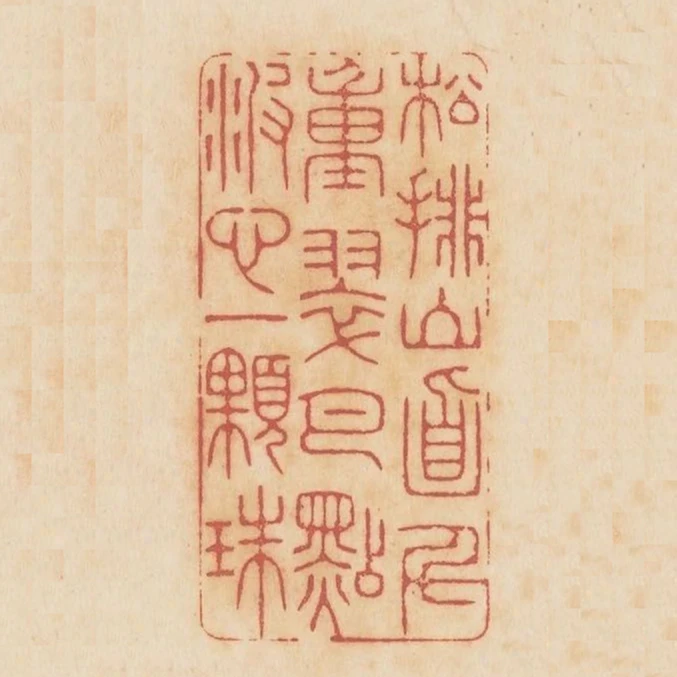 松排山面千
重翠月點
波心一顆珠